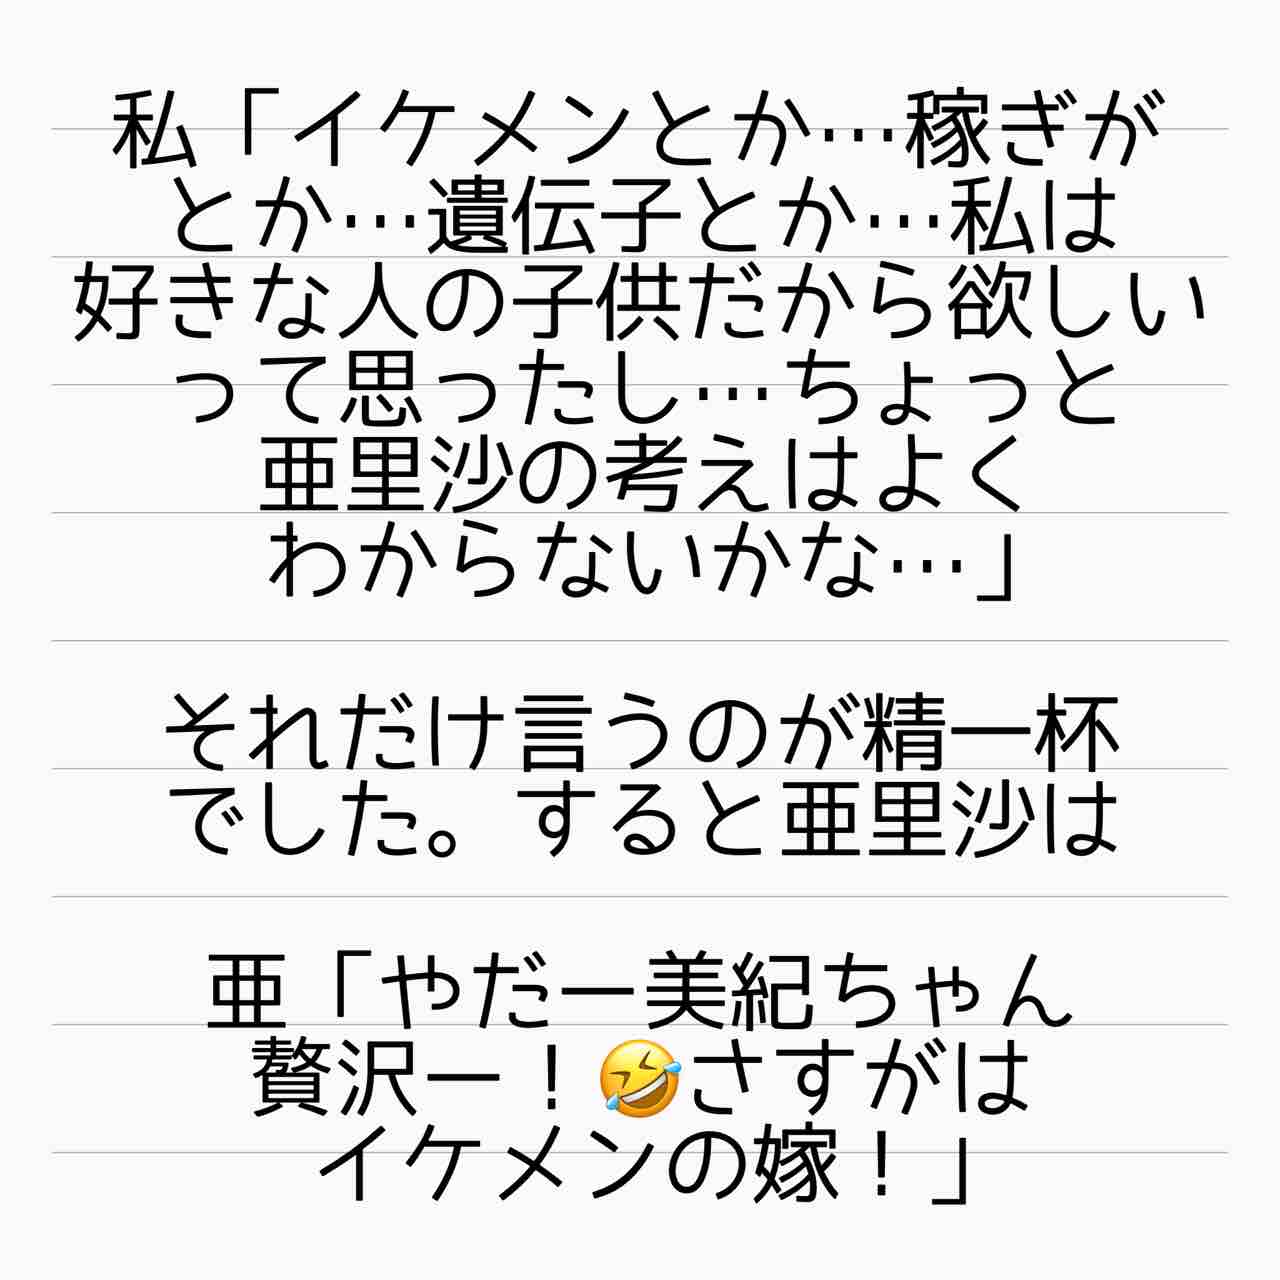 私「イケメンとか…稼ぎが
とか…遺伝子とか…私は
好きな人の子供だから欲しい
って思ったし…ちょっと
亜里沙の考えはよく
わからないかな…」
それだけ言うのが精一杯
でした。すると亜里沙は
亜「やだー美紀ちゃん
贅沢ー！🤣さすがは
イケメンの嫁！」